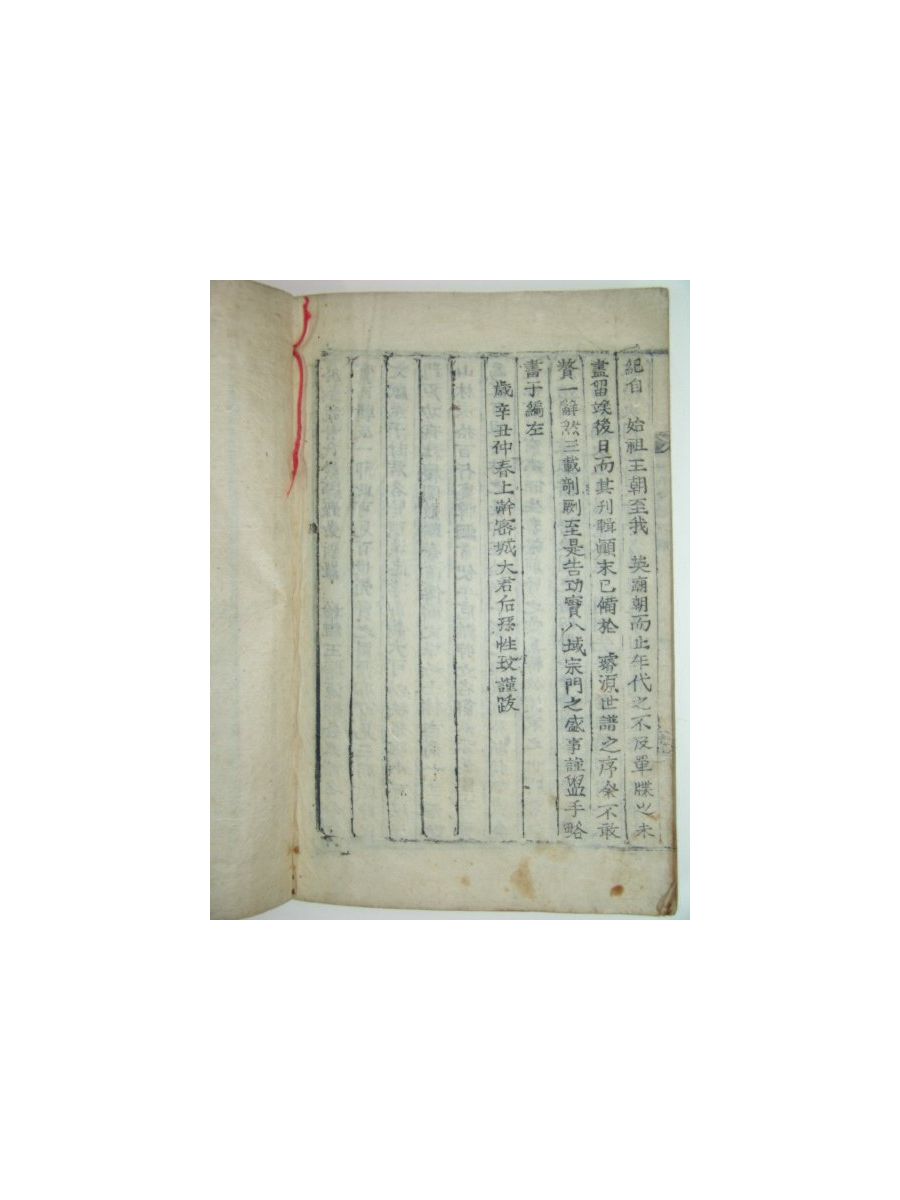 紀自 始祖王朝至我 英廟朝而止年代之不及單牒之未
盡留竢後日而其刋輯顚末已備於 璿源世譜之序余不敢
贅一辭然三載剞劂至是告功實八域宗門之盛事謹盥手略
書于編左
歲辛丑仲春上澣密城大君后孫性玟謹跋